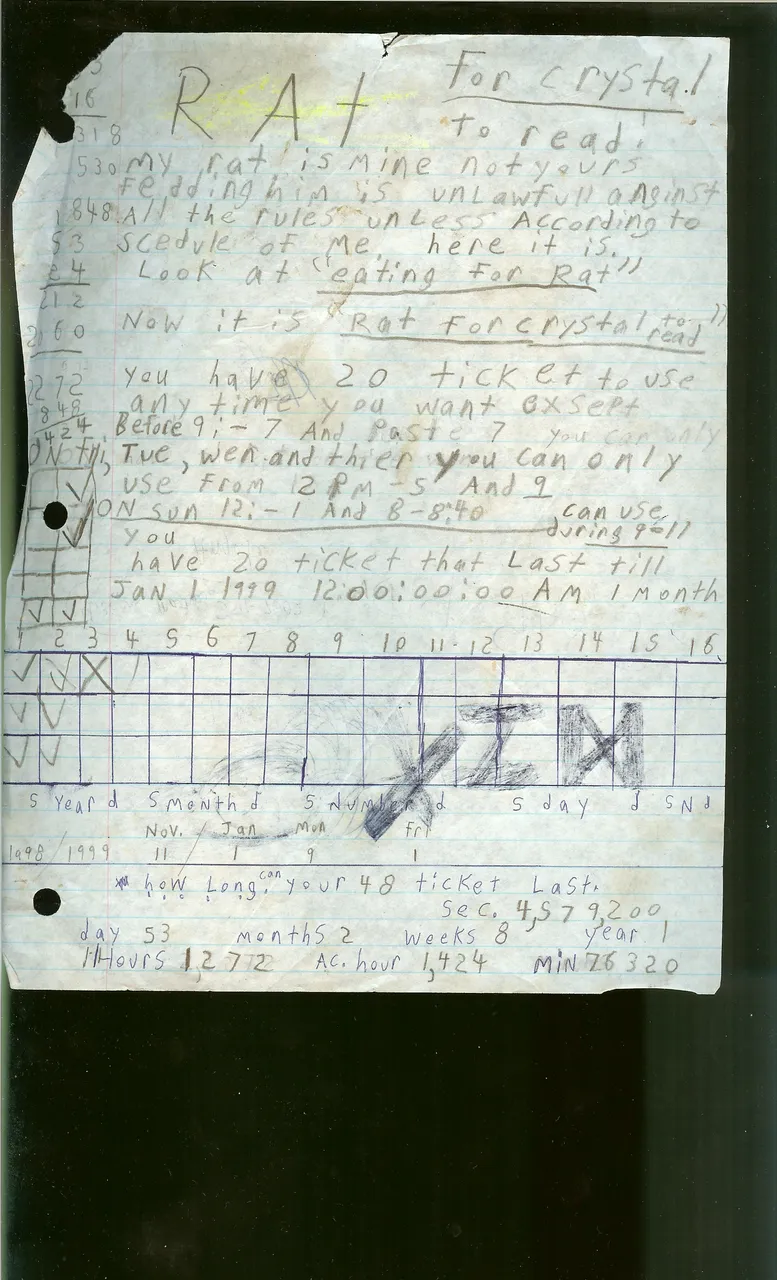 RAt
For crystal
to read.
my rat is mine not yours
Fedding him is unLawfull anginst
All the rules unLess According to
scedule of me here it is.
Look at "eating For Rat"
Now it is Rat For crystal to read"
you have 20 ticket to use
any time you want exsept
Before 9:-7 And Paste 7 you can only
ON fri, Tue, wen and thier you can only
use From 12 PM -5 And 9
ON sun 12:-1 And 8-8:40 can use
you during 9-11
have 20 ticket that Last till
JAN 1 1999 12:00:00:00 AM 1 month
3
16
318
530
848
53
24
212
1060
1272
848
424
1 2 3 4 5 6 7 8 9 10 11 12 13 14 15 16
S Year d S month d S Number d S day d S N d
Nov. / Jan Mon Fri
1998 / 1999 11 1 9 1
how Long can your 48 ticket Last.
Sec. 4,579,200
day 53 months 2 weeks 8 year 1
Hours 1,272 AC. hour 1,424 MiN 76320